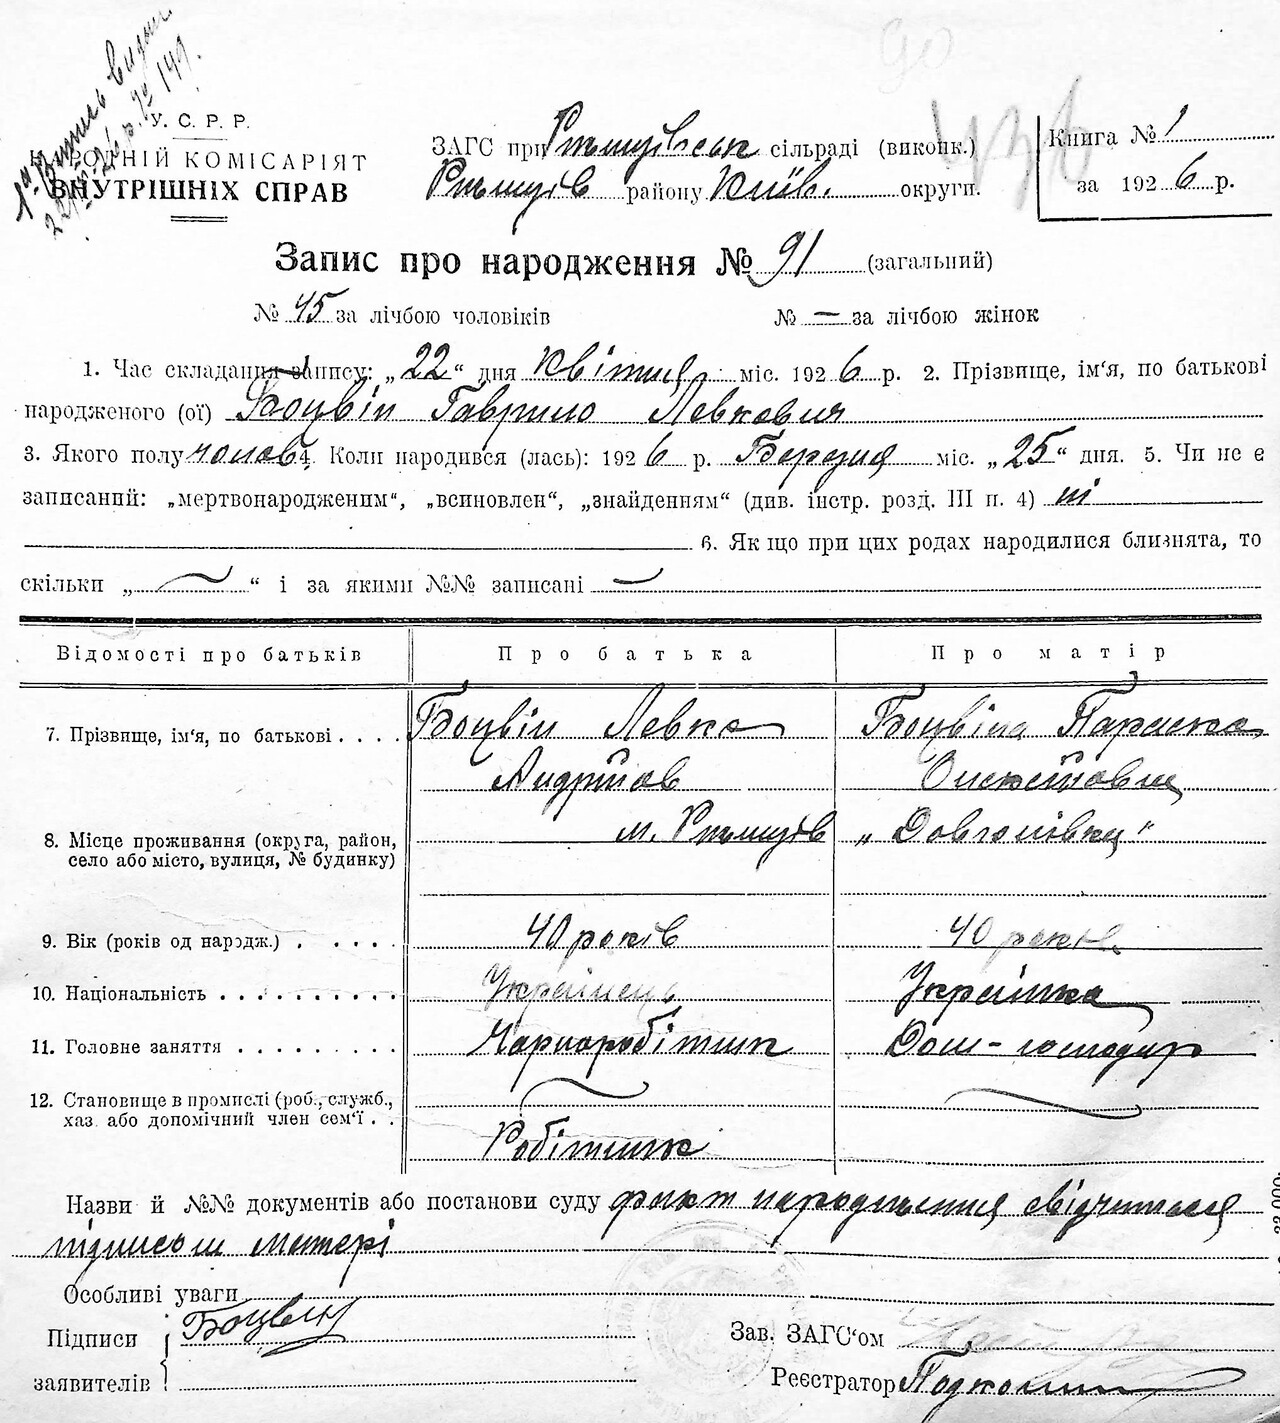 90
436
1ª Витись видан
У. С. Р. Р.
НАРОДНІЙ КОМІСАРІЯТ
ВНУТРІШНІХ СПРАВ
ЗАГС при Ржищівськ сільраді (виконк.)
Ржищів району Київ. округи.
Книга № 1
за 1926 р.
Запис про народження № 91 (загальний)
№ 45 за лічбою чоловіків № — за лічбою жінок
1. Час складання запису: „22“ дня Квітня міс. 1926 р. 2. Прізвище, ім'я, по батькові
народженого (ої) Боцвін Гаврило Левкович
3. Якого полу чолов 4. Коли народився (лась): 1926 р. Березня міс. „25“ дня. 5. Чи не є
записаний: „мертвонародженим“, „всиновлен“, „знайденням“ (див. інстр. розд. III п. 4) ні
6. Як що при цих родах народилися близнята, то
скільки „—“ і за якими №№ записані —
Відомості про батьків Про батька Про матір
7. Прізвище, ім'я, по батькові . . . . Боцвін Левко Боцвіна Параска
Андріїов
8. Місце проживання (округа, район, м. Ржищів „Довгалівка“
село або місто, вулиця, № будинку)
9. Вік (років од народж.) . . . . . 40 років 40 років
10. Національність . . . . . . . . . . Українець Українка
11. Головне заняття . . . . . . . . . Чорноробітник Дом-господар
12. Становище в промислі (роб., служб.,
хаз. або допомічний член сем'ї . . Робітник
Назви й №№ документів або постанови суду факт народження свідчиться
підписом матері
Особливі уваги
Підписи Боцвин
заявителів
Зав. ЗАГС'ом
Реєстратор